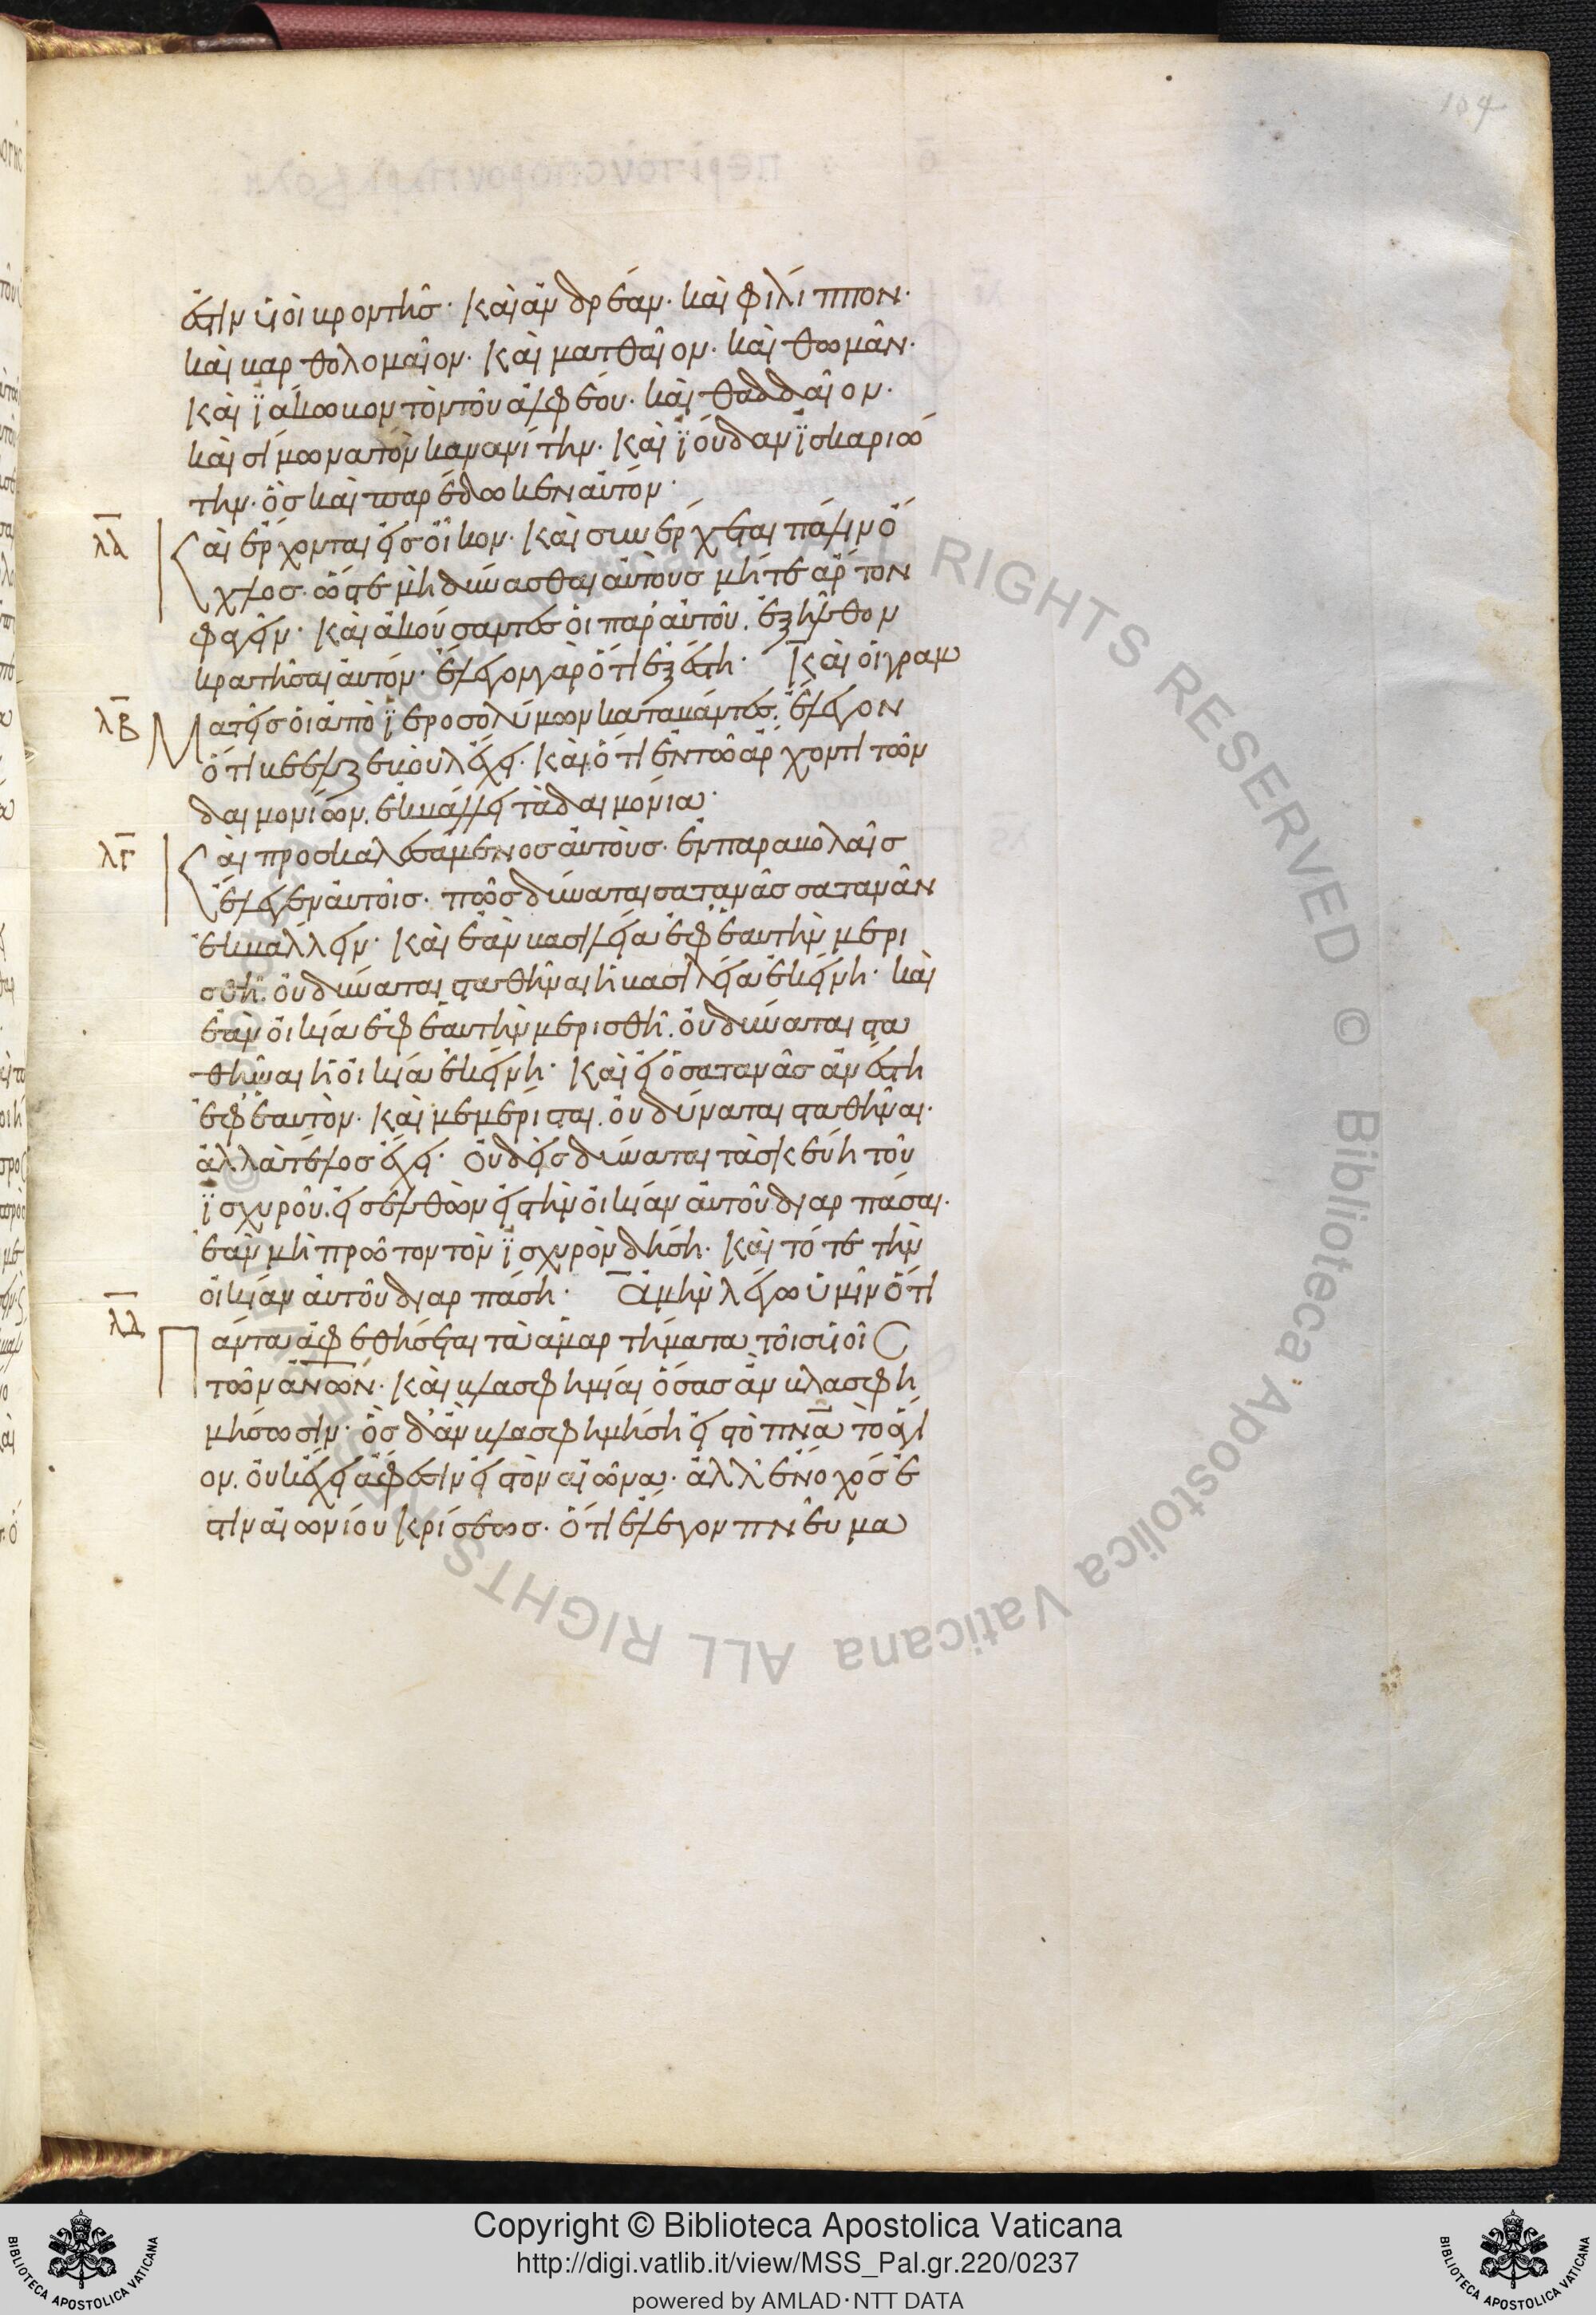 104
ἐστὶν υἱοὶ βροντῆσ· Καὶ ἀνδρέαν· καὶ φίλιππον·
καὶ βαρθολομαῖον· Καὶ ματθαῖον· καὶ θωμᾶν·
Καὶ ϊάκωβον τὸν τοῦ ἀλφέου· καὶ θαδδαῖον·
καὶ σίμωνα τὸν κανανίτην· Καὶ ϊούδαν ϊσκαριώ
την· ὃσ καὶ παρέδωκεν αὐτόν·
λα Καὶ ἔρχονται εἰσ οἶκον· Καὶ συνέρχεται πάλιν ὁ
χλοσ· ὥστε μὴ δύνασθαι αὐτοὺσ μήτε ἄρτον
φαγεῖν· Καὶ ἀκούσαντεσ οἱ παρ' αὐτοῦ. ἐξῆλθον
κρατῆσαι αὐτόν· ἔλεγον γὰρ ὅτι ἐξέστη· Καὶ οἱ γραμ
λβ Ματεῖσ οἱ ἀπὸ ϊεροσολύμων καταβάντεσ. ἔλεγον
ὅτι βεελζεβοὺλ ἔχει· Καὶ ὅτι ἐν τῶ ἄρχοντι τῶν
δαιμονίων. ἐκβάλλει τὰ δαιμόνια·
λγ Καὶ προσκαλεσάμενοσ αὐτοὺσ· ἐν παραβολαῖσ
ἔλεγεν αὐτοῖσ· πῶσ δύναται σατανᾶσ σατανᾶν
ἐκβάλλειν· Καὶ ἐὰν βασιλεία ἐφ' ἑαυτὴν μερι
σθῆ. οὐ δύναται σταθῆναι ἡ βασιλεία ἐκείνη· καὶ
ἐὰν οἰκία ἐφ' ἑαυτὴν μερισθῆ. οὐ δύναται στα
θῆναι ἡ οἰκία ἐκείνη· Καὶ εἰ ὁ σατανᾶσ ἀνέστη
ἐφ' ἑαυτὸν· Καὶ μεμέρισται. οὐ δύναται σταθῆναι·
ἀλλὰ τέλοσ ἔχει· Οὐδεὶσ δύναται τὰ σκεύη τοῦ
ϊσχυροῦ. εἰσελθὼν εἰσ τὴν οἰκίαν αὐτοῦ διαρπάσαι·
ἐὰν μὴ πρῶτον τὸν ϊσχυρὸν δήση· Καὶ τότε τὴν
οἰκίαν αὐτοῦ διαρπάση· Ἀμὴν λέγω ὑμῖν ὅτι
λδ Πάντα ἀφεθήσεται τὰ ἁμαρτήματα τοῖσ υἱοῖσ
τῶν ἀνων· Καὶ βλασφημίαι ὅσασ ἂν βλασφη
μήσωσιν· ὃσ δ' ἂν βλασφημήση εἰσ τὸ πνα τὸ ἅγι
ον. οὐκ ἔχει ἄφεσιν εἰσ τὸν αἰῶνα· ἀλλ' ἔνοχόσ ἐ
στιν αἰωνίου κρίσεωσ· ὅτι ἔλεγον πνεῦμα
ALL RIGHTS RESERVED © Biblioteca Apostolica Vaticana
Copyright © Biblioteca Apostolica Vaticana
http://digi.vatlib.it/view/MSS_Pal.gr.220/0237
powered by AMLAD·NTT DATA
BIBLIOTECA APOSTOLICA VATICANA
BIBLIOTECA APOSTOLICA VATICANA